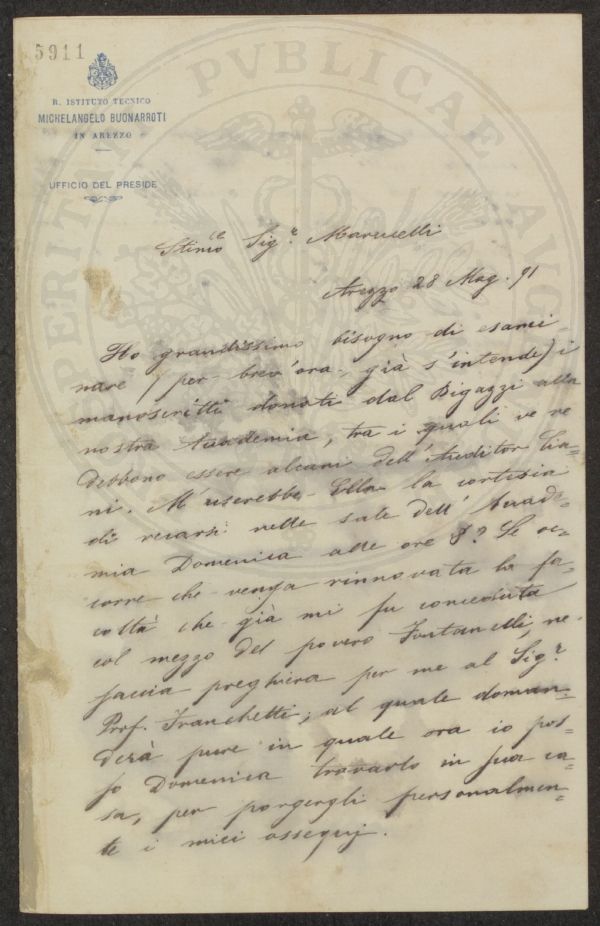 5911
R. ISTITUTO TECNICO
MICHELANGELO BUONARROTI
IN AREZZO
UFFICIO DEL PRESIDE
PERITA PVBLICAE
Sig.r Marucelli
Arezzo 28 Mag. 91
Ho grandissimo bisogno di esami-
nare (per brev'ora, già s'intende) i
manoscritti donati dal Bigazzi alla
nostra Accademia, tra i quali ve ne
debbono essere alcuni dell'Auditor
ni. M'userebbe Ella la cortesia
di recarsi nelle sale dell'Accade-
mia Domenica alle ore 8? Se oc-
corre che venga rinnovata la fa-
coltà che già mi fu conceduta
col mezzo del povero Fontanelli, ne
faccia preghiera per me al Sig.r
Prof. Franchetti; al quale doman-
derà pure in quale ora io pos-
so Domenica trovarlo in sua ca-
sa, per porgergli personalmen-
te i miei ossequj.